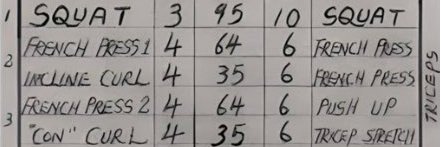 1 SQUAT 3 95 10 SQUAT
FRENCH PRESS 1 4 64 6 FRENCH PRESS
2 INCLINE CURL 4 35 6 FRENCH PRESS
FRENCH PRESS 2 4 64 6 PUSH UP
3 "CON" CURL 4 35 6 TRICEP STRETCH
TRICEPS